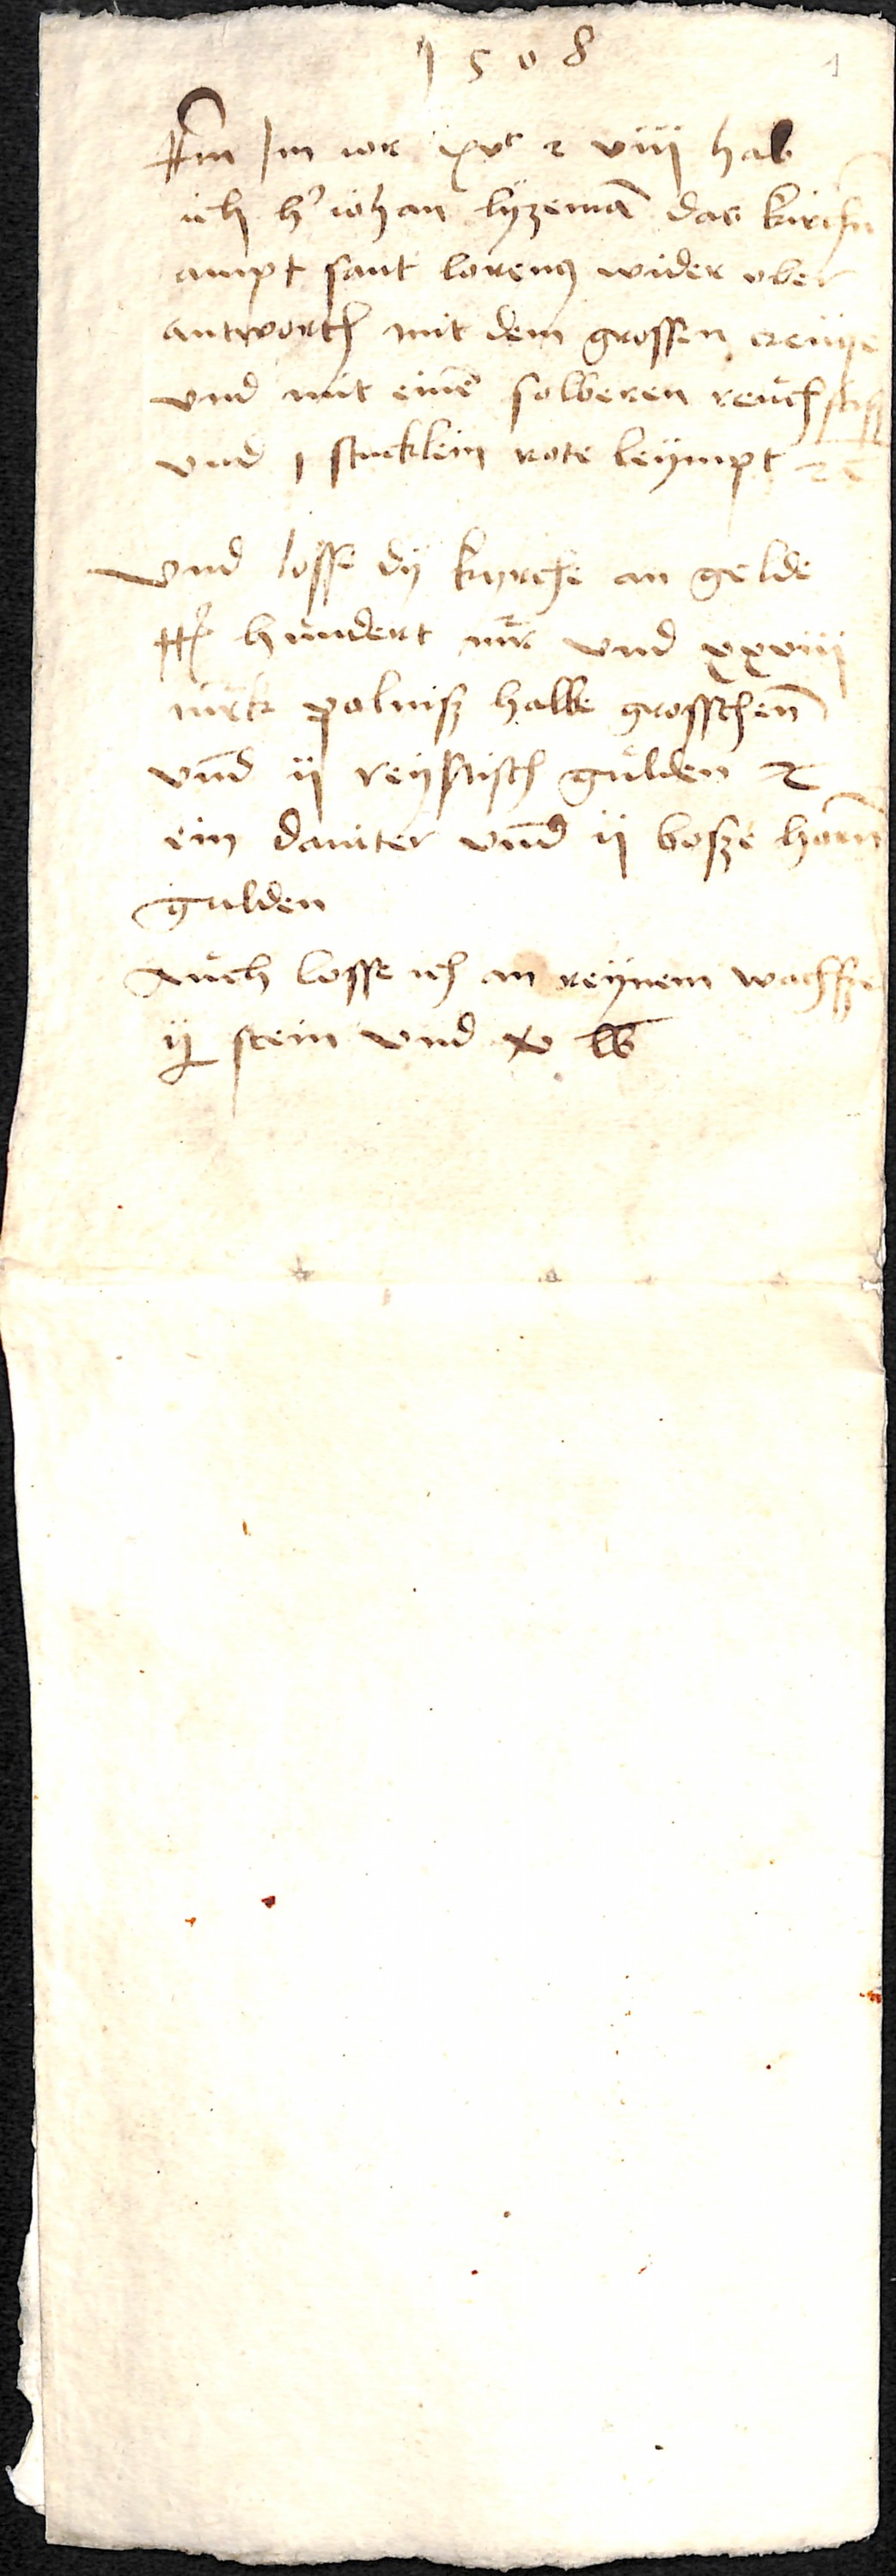 1508
1
Im ior xvc 2 viij hab
ich h' iohan lyzemā das kirchn
ampt sant lorenz wider ober
antworth mit dem grossen creuze
vnd mit einē solberen reuch
vnd 1 stucklein rote leympt
vnd losse dy kyrche an gelde
hundert mr vnd xxviij
mrk polnisz halbe grosschenn
vnd ij reynisch gulden 2
ein daviter vnd ij bosze horn
gulden
Auch losse ich an reynem wachsze
ij stein vnd xv lb